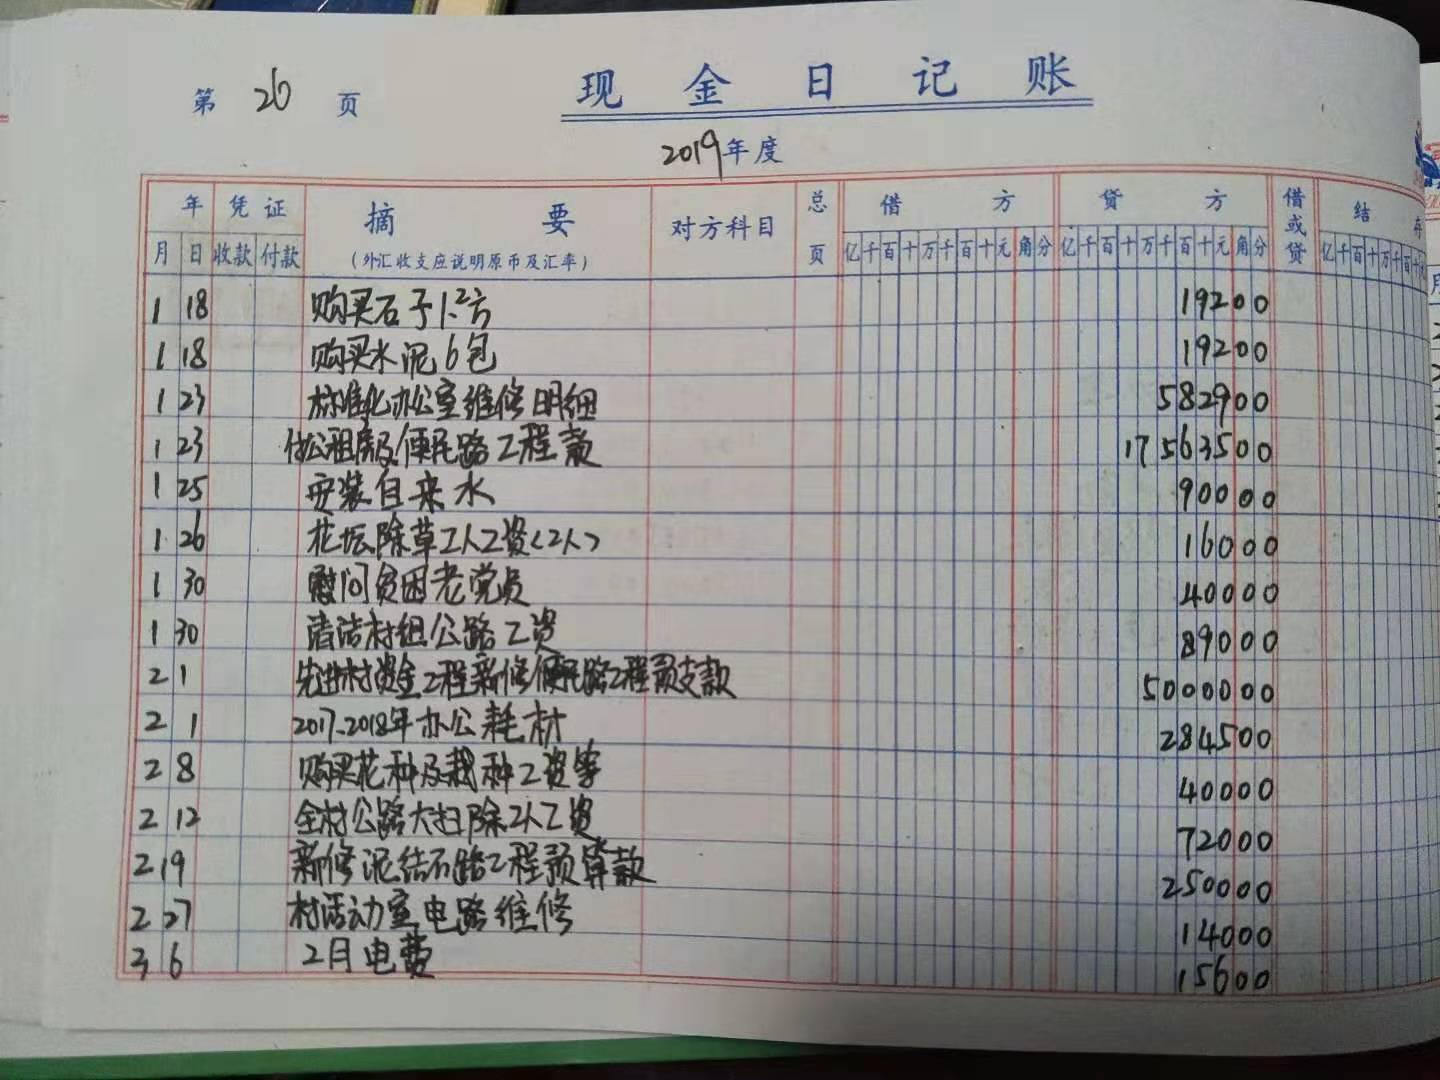 第 26 页
现金日记账
2019年度
年 凭证 摘要 对方科目 总页 借方 贷方 借或贷 结存
月 日 收款 付款 (外汇收支应说明原币及汇率) 亿千百十万千百十元角分 亿千百十万千百十元角分 亿千百十万千百十元
1 18 购买石子1.2方 19200
1 18 购买水泥6包 19200
1 23 标准化办公室维修明细 582900
1 23 付公租房及便民路工程款 17563500
1 25 安装自来水 90000
1 26 花坛除草工人工资<2人> 16000
1 30 慰问贫困老党员 40000
1 30 清洁村组公路工资 89000
2 1 先进村资金工程新修便民路工程预支款 5000000
2 1 2017-2018年办公耗材 284500
2 8 购买花种及栽种工资等 40000
2 12 全村公路大扫除工人工资 72000
2 19 新修泥结石路工程预算款 250000
2 27 村活动室电路维修 14000
3 6 2月电费 15600